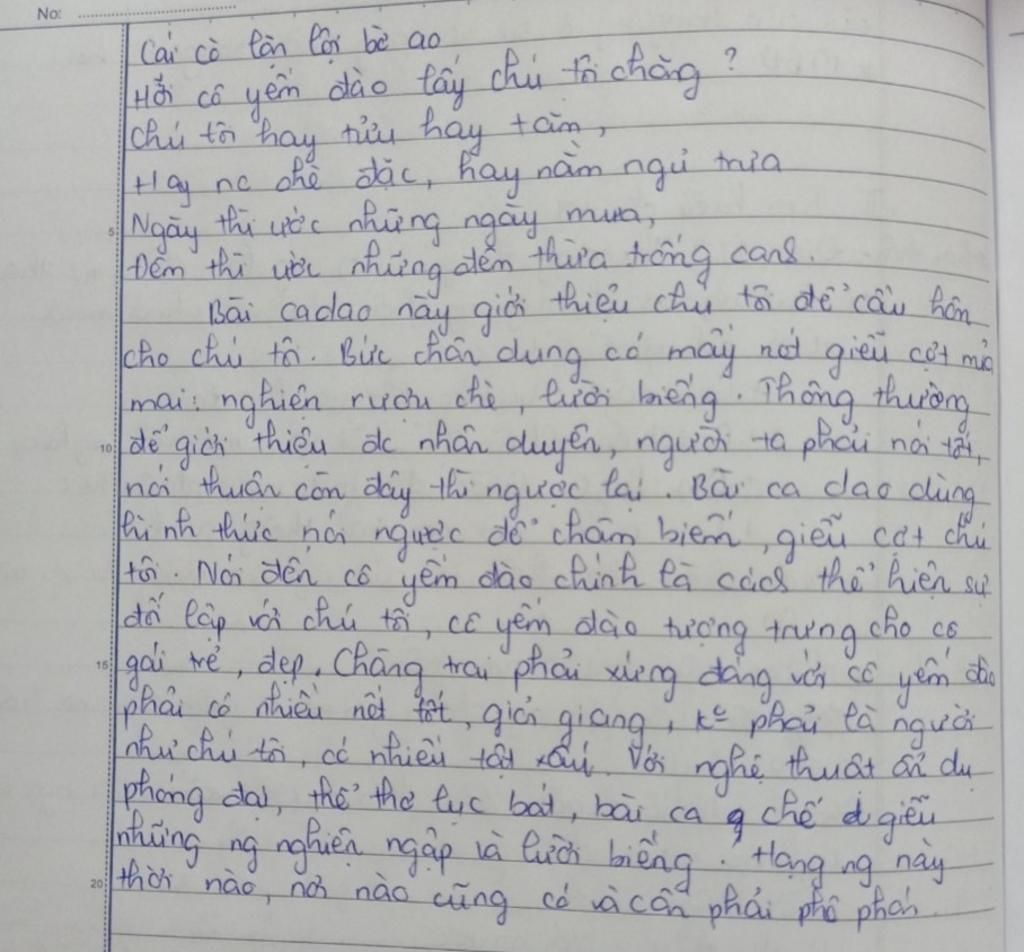 No:
Cái cò lặn lội bờ ao
Hỡi cô yếm đào lấy chú tôi chăng?
Chú tôi hay tửu hay tăm,
Hay nc chè đặc, hay nằm ngủ trưa
Ngày thì ước những ngày mưa,
5
Đêm thì ước những đêm thừa trống canh.
Bài ca dao này giới thiệu chú tôi để cầu hôn
cho chú tôi. Bức chân dung có mấy nét giễu cợt mỉa
mai: nghiện rượu chè, lười biếng. Thông thường
10 để giới thiệu đc nhân duyên, người ta phải nói tốt,
nói thuận còn đây thì ngược lại. Bài ca dao dùng
hình thức nói ngược để châm biếm, giễu cợt chú
tôi. Nói đến cô yếm đào chính là cách thể hiện sự
đối lập với chú tôi, cô yếm đào tượng trưng cho cô
15 gái trẻ, đẹp. Chàng trai phải xứng đáng với cô yếm đào
phải có nhiều nét tốt, giỏi giang, ko phải là người
như chú tôi, có nhiều tật xấu. Với nghệ thuật ẩn dụ
phóng đại, thể thơ lục bát, bài ca chế giễu
những ng nghiện ngập và lười biếng. Hạng ng này
20 thời nào, nơi nào cũng có và cần phải phê phán.